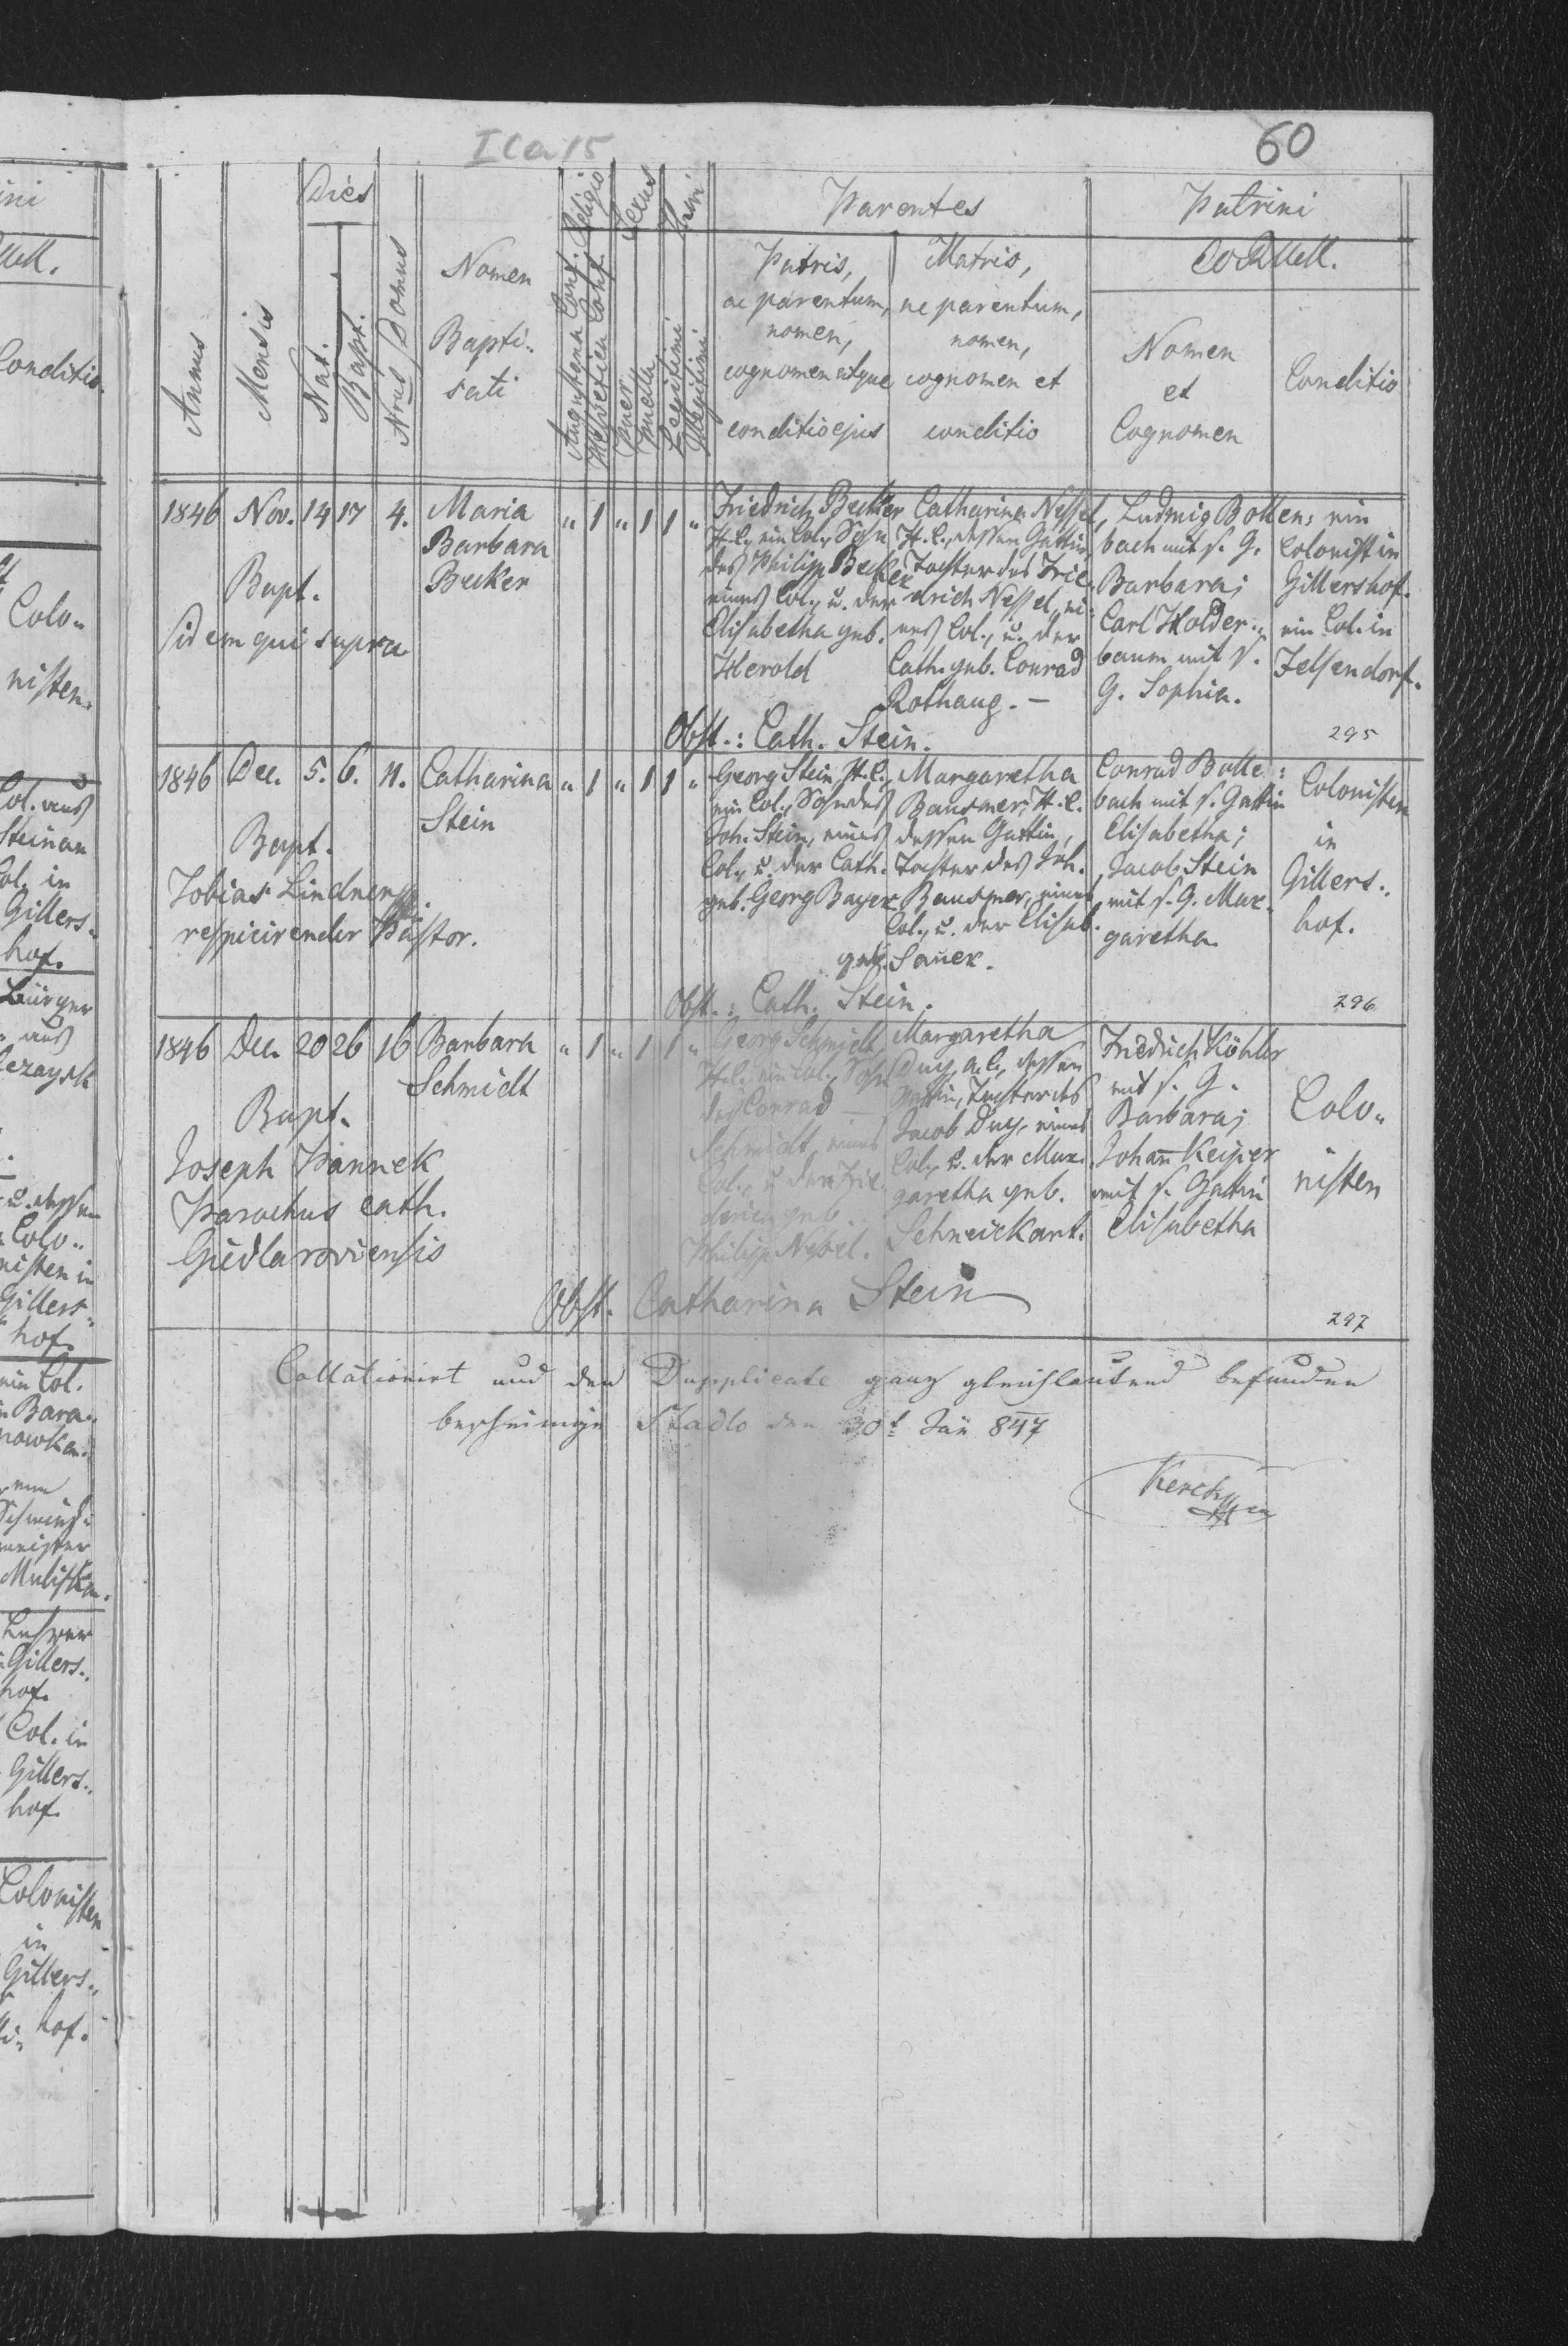 ICa15
60
Dies
Religio
Sexus
Thori
Parentes
Patrini
Annus
Mensis
Nat.
Bapt.
Nrus Domus
Nomen
Bapti-
sati
Augustana Conf.
Helvetica Conf.
Puer
Puella
Legitimi
Illegitimi
Patris,
ac parentum,
nomen,
cognomen atque
conditio ejus
Matris,
ac parentum,
nomen,
cognomen et
conditio
Nomen
et
Cognomen
Conditio
1846 Nov. 14 17 4. Maria
Barbara
Becker
" 1 " 1 1 "
Bapt.
Idem qui supra
Friedrich Becker
H.C., ein Col., Sohn
des Philipp Becker
eines Col., u. der
Elisabetha geb.
Herold
Catharina Nessel,
H.C., dessen Gattin,
Tochter des Frie-
drich Nessel, ei-
nes Col., u. der
Cath. geb. Conrad
Rothaug. —
Ludwig Botten-
bach mit s. G.
Barbara;
Carl Holder-
baum mit s.
G. Sophia.
ein
Colonist in
Gillershof.
ein Col. in
Felsendorf.
Obst.: Cath. Stein.
295
1846 Dec. 5. 6. 11. Catharina
Stein
" 1 " 1 1 "
Bapt.
Tobias Lindner
respicirender Pastor.
Georg Stein, H.C.,
ein Col., Sohn des
Joh. Stein, eines
Col., u. der Cath.
geb. Georg Bayer
Margaretha
Bausmer, H.C.
dessen Gattin,
Tochter des Joh.
Bausmer, eines
Col., u. der Elisab.
geb. Sauer.
Conrad Botte-
bach mit s. Gattin
Elisabetha;
Jacob Stein
mit s. G. Mar-
garetha.
Colonisten
in
Gillers-
hof.
Obst.: Cath. Stein.
296
1846 Dec. 20 26 16 Barbara
Schmidt
" 1 " 1 1 "
Bapt.
Joseph Pannek
Parochus Cath.
Giedlaroviensis
Georg Schmidt
H.C., ein Col., Sohn
des Conrad —
Schmidt, eines
Col., u. der Frie-
derica geb.
Philipp Nebel.
Margaretha
Duy, A.C., dessen
Gattin, Tochter des
Jacob Duy, eines
Col., u. der Mar-
garetha geb.
Schneickart.
Friedrich Köhler
mit s. G.
Barbara;
Johan Keiper
mit s. Gattin
Elisabetha
Colo-
nisten
Obst. Catharina Stein
297
Collationirt und den Dupplicate ganz gleichlautend befunden
bescheinige Stadlo den 30t Jän 847